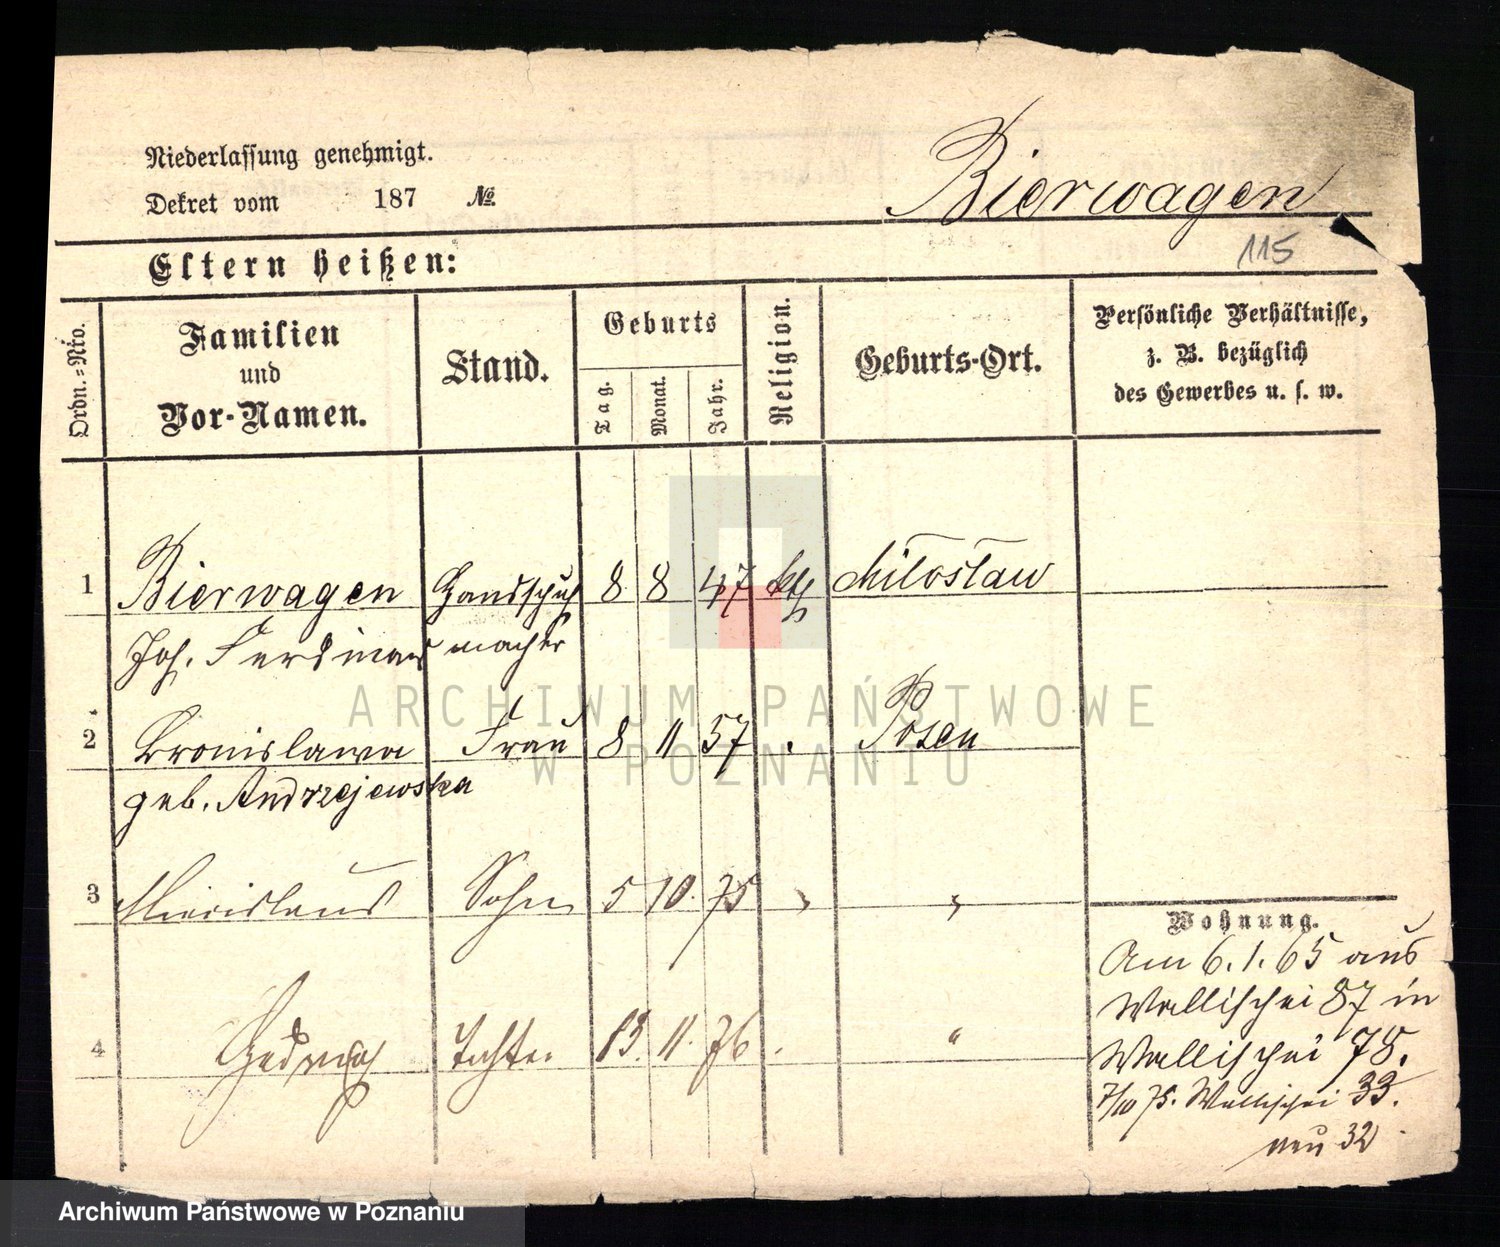 Niederlassung genehmigt.
Dekret vom 187 №
Bierwagen
115
Eltern heißen:
Ordn.-Nro.
Familien
und
Vor-Namen.
Stand.
Geburts
Tag.
Monat.
Jahr.
Religion.
Geburts-Ort.
Persönliche Verhältnisse,
z. B. bezüglich
des Gewerbes u. s. w.
1 Bierwagen Handschuh 8 8 47 kth Miloslaw
Joh. Ferdinand macher
2 Bronislawa Frau 8 11 57 Posen
geb. Andrzejewska
3 Miecislaus Sohn 5 10. 75 "
4 Hedwig Tochter 13. 11. 76 "
Wohnung.
Am 6. 1. 65 aus
Wallischei 87 in
Wallischei 78.
7/10 75. Wallischei 33.
neu 32
ARCHIWUM PAŃSTWOWE
W POZNANIU
Archiwum Państwowe w Poznaniu